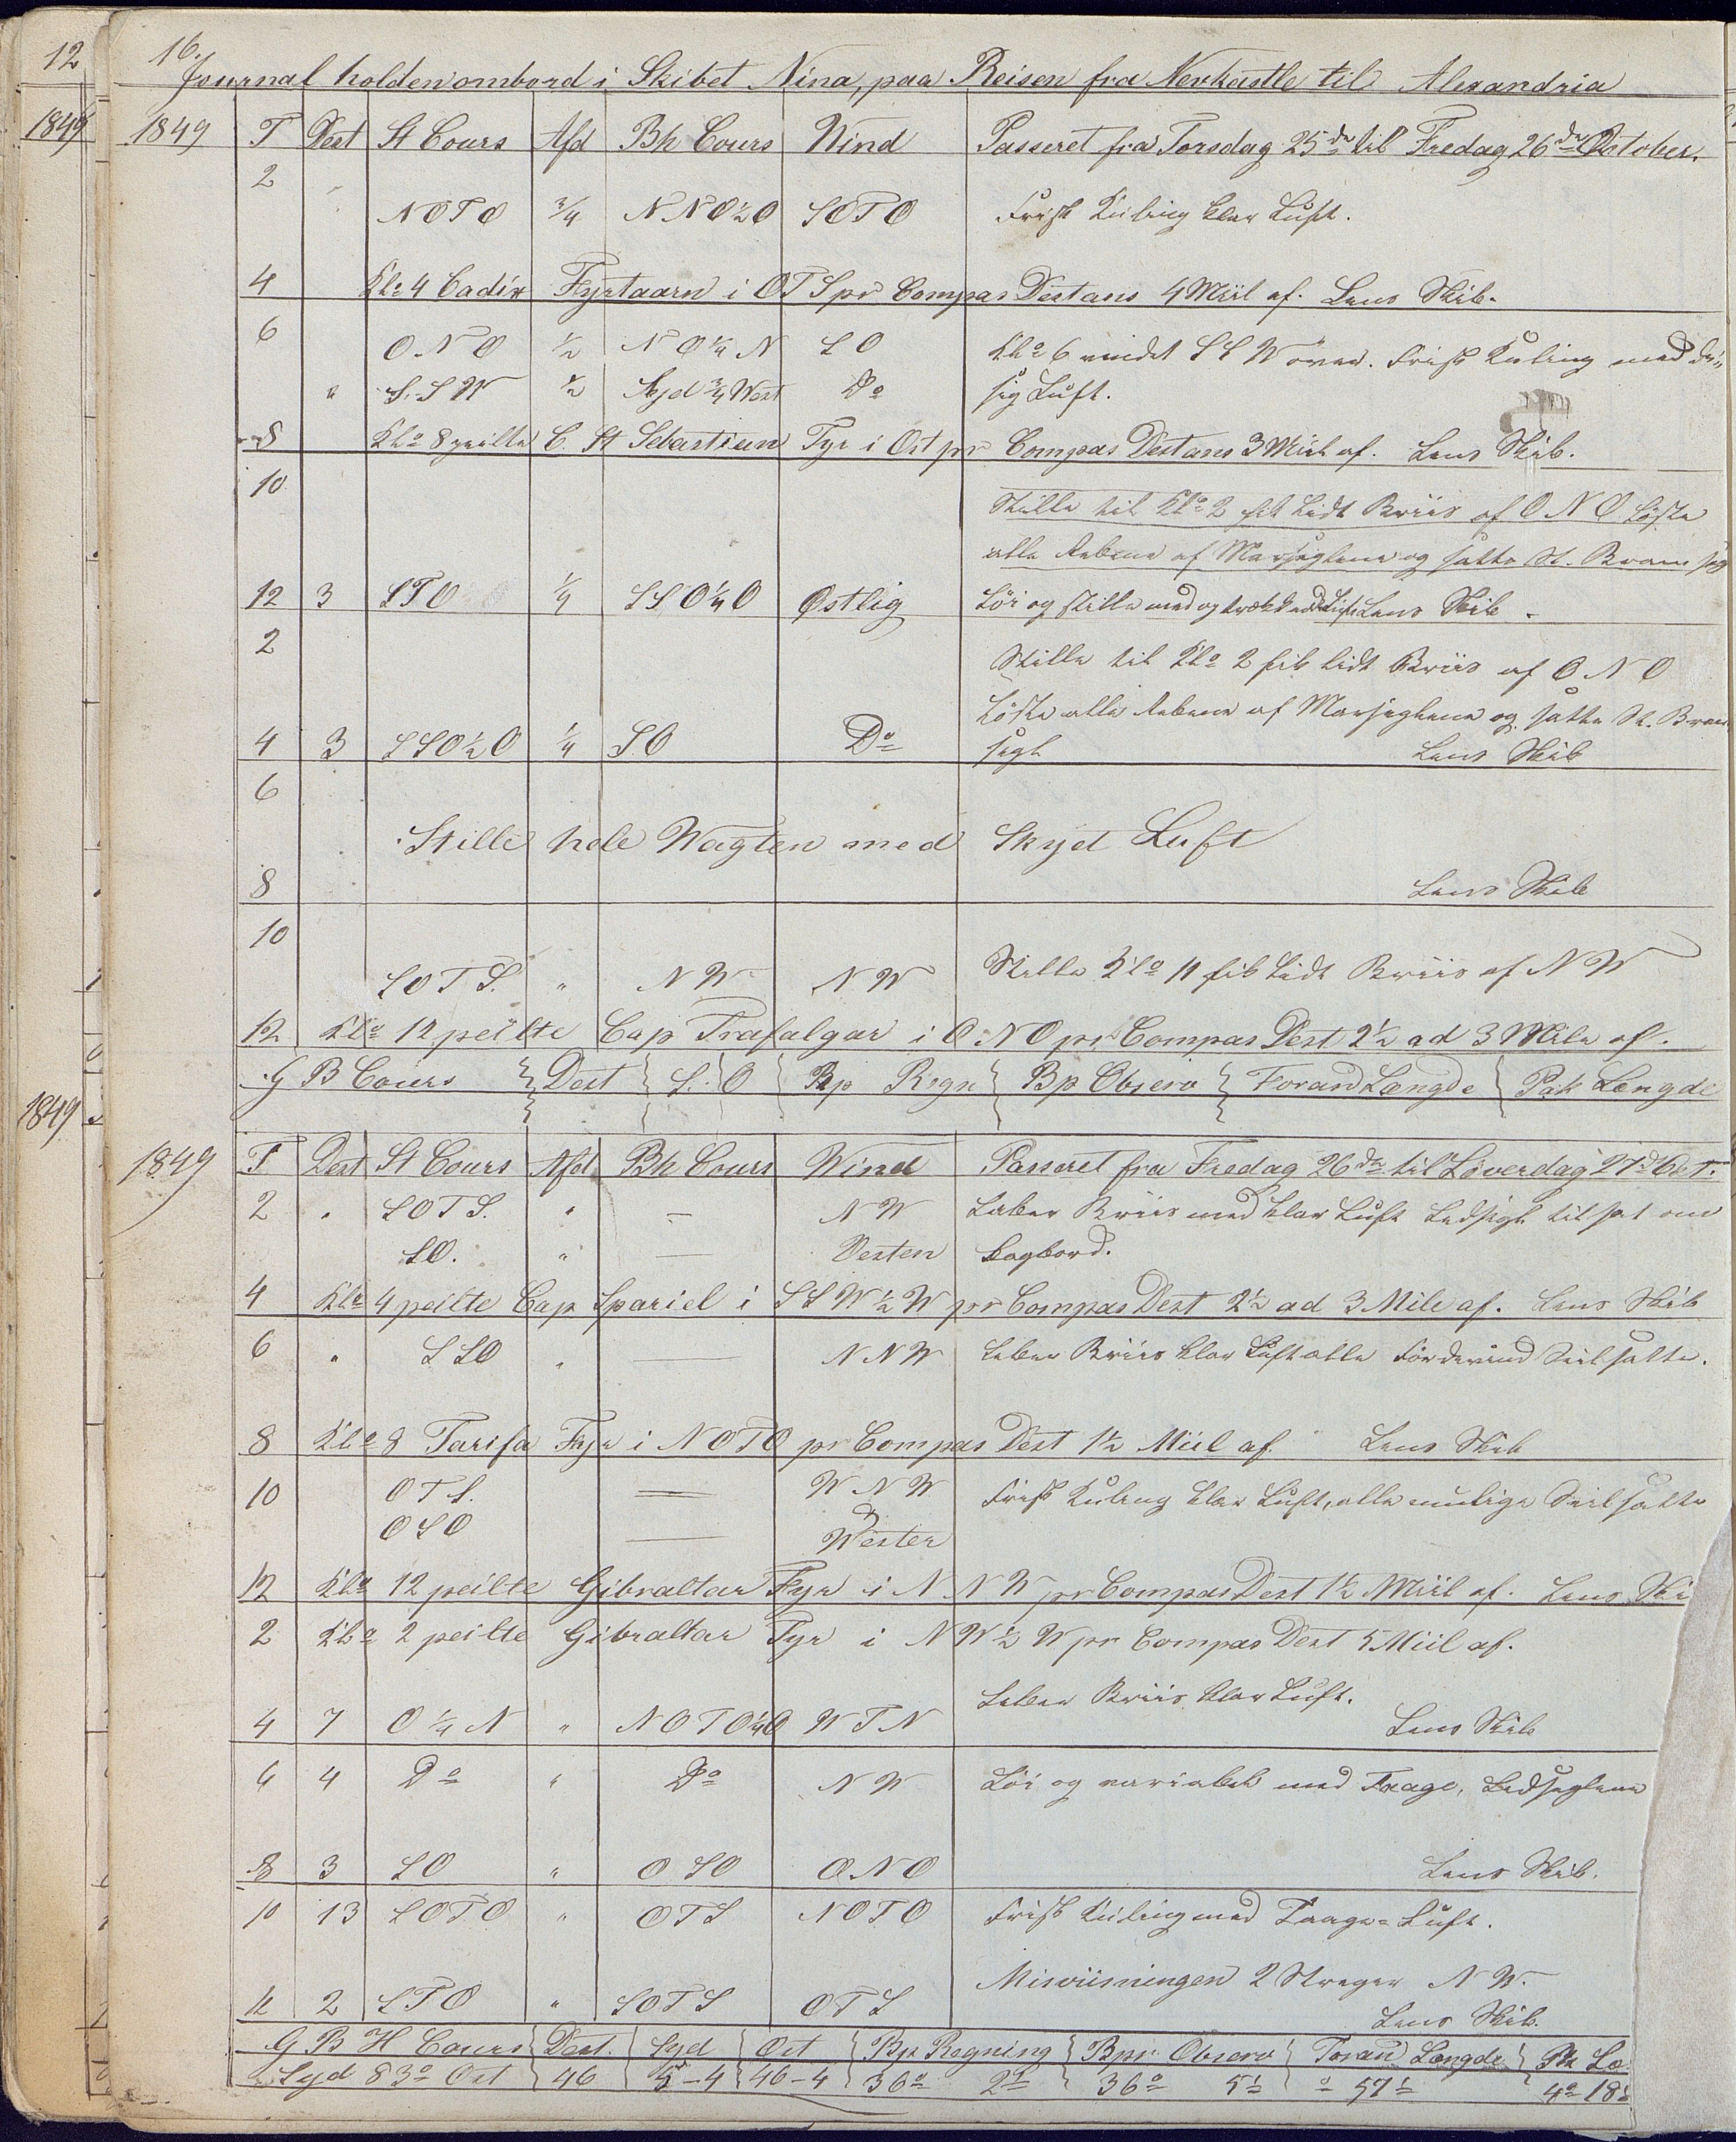 12
1849
1849
16.
Journal holden ombord i Skibet Nina, paa Reisen fra Nevkastle til Alexandria
1849 T Dest St Cours Afd Bh Cours Wind Passeret fra Torsdag 25de til Fredag 26de October.
2
NOTO 3/4 NNO½O SOTO Frisk Kuling klar Luft.
4 Klo 4 Cadix Fyrtaarn i OTS pr Compas Destans 4 Miil af. Lens Skib.
6 ONO ½ NO¼N SO Klo 6 vendt SSW over. Frisk Kuling med di=
" S.SW ½ Syd ¾ West Do sig Luft.
8 Klo 8 peilte C. St Sebastian Fyr i Ost pr Compas Destans 3 Miil af. Lens Skib.
10
Stille til Klo 2 fik lidt Briis af ONO Löste
alle Rebene af Marsseglene og satte St. Bram seg
12 3 STO ¼ SSO¼O Østlig Löi og stille med og Luft Lens Skib.
2
Stille til Klo 2 fik lidt Briis af ONO
Löste alle Rebene af Marsseglene og satte St. Bram
4 3 SSO½O ¼ SO Do segl Lens Skib
6
Stille hele Wagten med Skyet Luft
8 Lens Skib
10
SOTS. " NW NW Stille Klo 11 fik Lidt Briis af NW
12 Klo 12 peilte Cap Trafalgar i ONO pr Compas Dest 2½ ad 3 Mile af.
G B Cours Dest S. O Bp Regn Bp Observ Forand Længde Pak Længde
1849 T Dest St Cours Afd Bh Cours Wind Passeret fra Fredag 26de til Löverdag 27d Oct.
2 " SOTS. " — NW Laber Briis med klar Luft Ledsegl tilsat om
SO. " — Vesten Bagbord.
4 Klo 4 peilte Cap Spariel i SSW½W pr Compas Dest 2½ ad 3 Mile af. Lens Skib
6 " SSO " — NNW Laber Briis klar Luft alle Fordevind Seil satte.
8 Klo 8 Tarifa Fyr i NOTO pr Compas Dest 1½ Miil af Lens Skib
10 OTS. — WNW Frisk Kuling klar Luft, alle mulige Seil satte
OSO — Wester
12 Klo 12 peilte Gibraltar Fyr i NNW pr Compas Dest 1½ Miil af. Lens Ski
2 Klo 2 peilte Gibraltar Fyr i NW½W pr Compas Dest 5 Miil af.
Laber Briis klar Luft.
4 7 O¼N " NOTO¼O WTN Lens Skib
6 4 Do " Do NW Löi og variabel med Taage, Ledseglene
8 3 SO " OSO ONO Lens Skib.
10 13 SOTO " OTS NOTO Frisk Kuling med Taage=Luft.
Misviisningen 2 Streger NW.
12 2 STO " SOTS OTS Lens Skib.
G B H Cours Dest. Syd Ost Bp Regning Bpr Observ Forand Længde Pk Læ
Syd 83° Ost 46 5-4 46-4 36° 2 36° 5½ ° 57½ 4° 18½